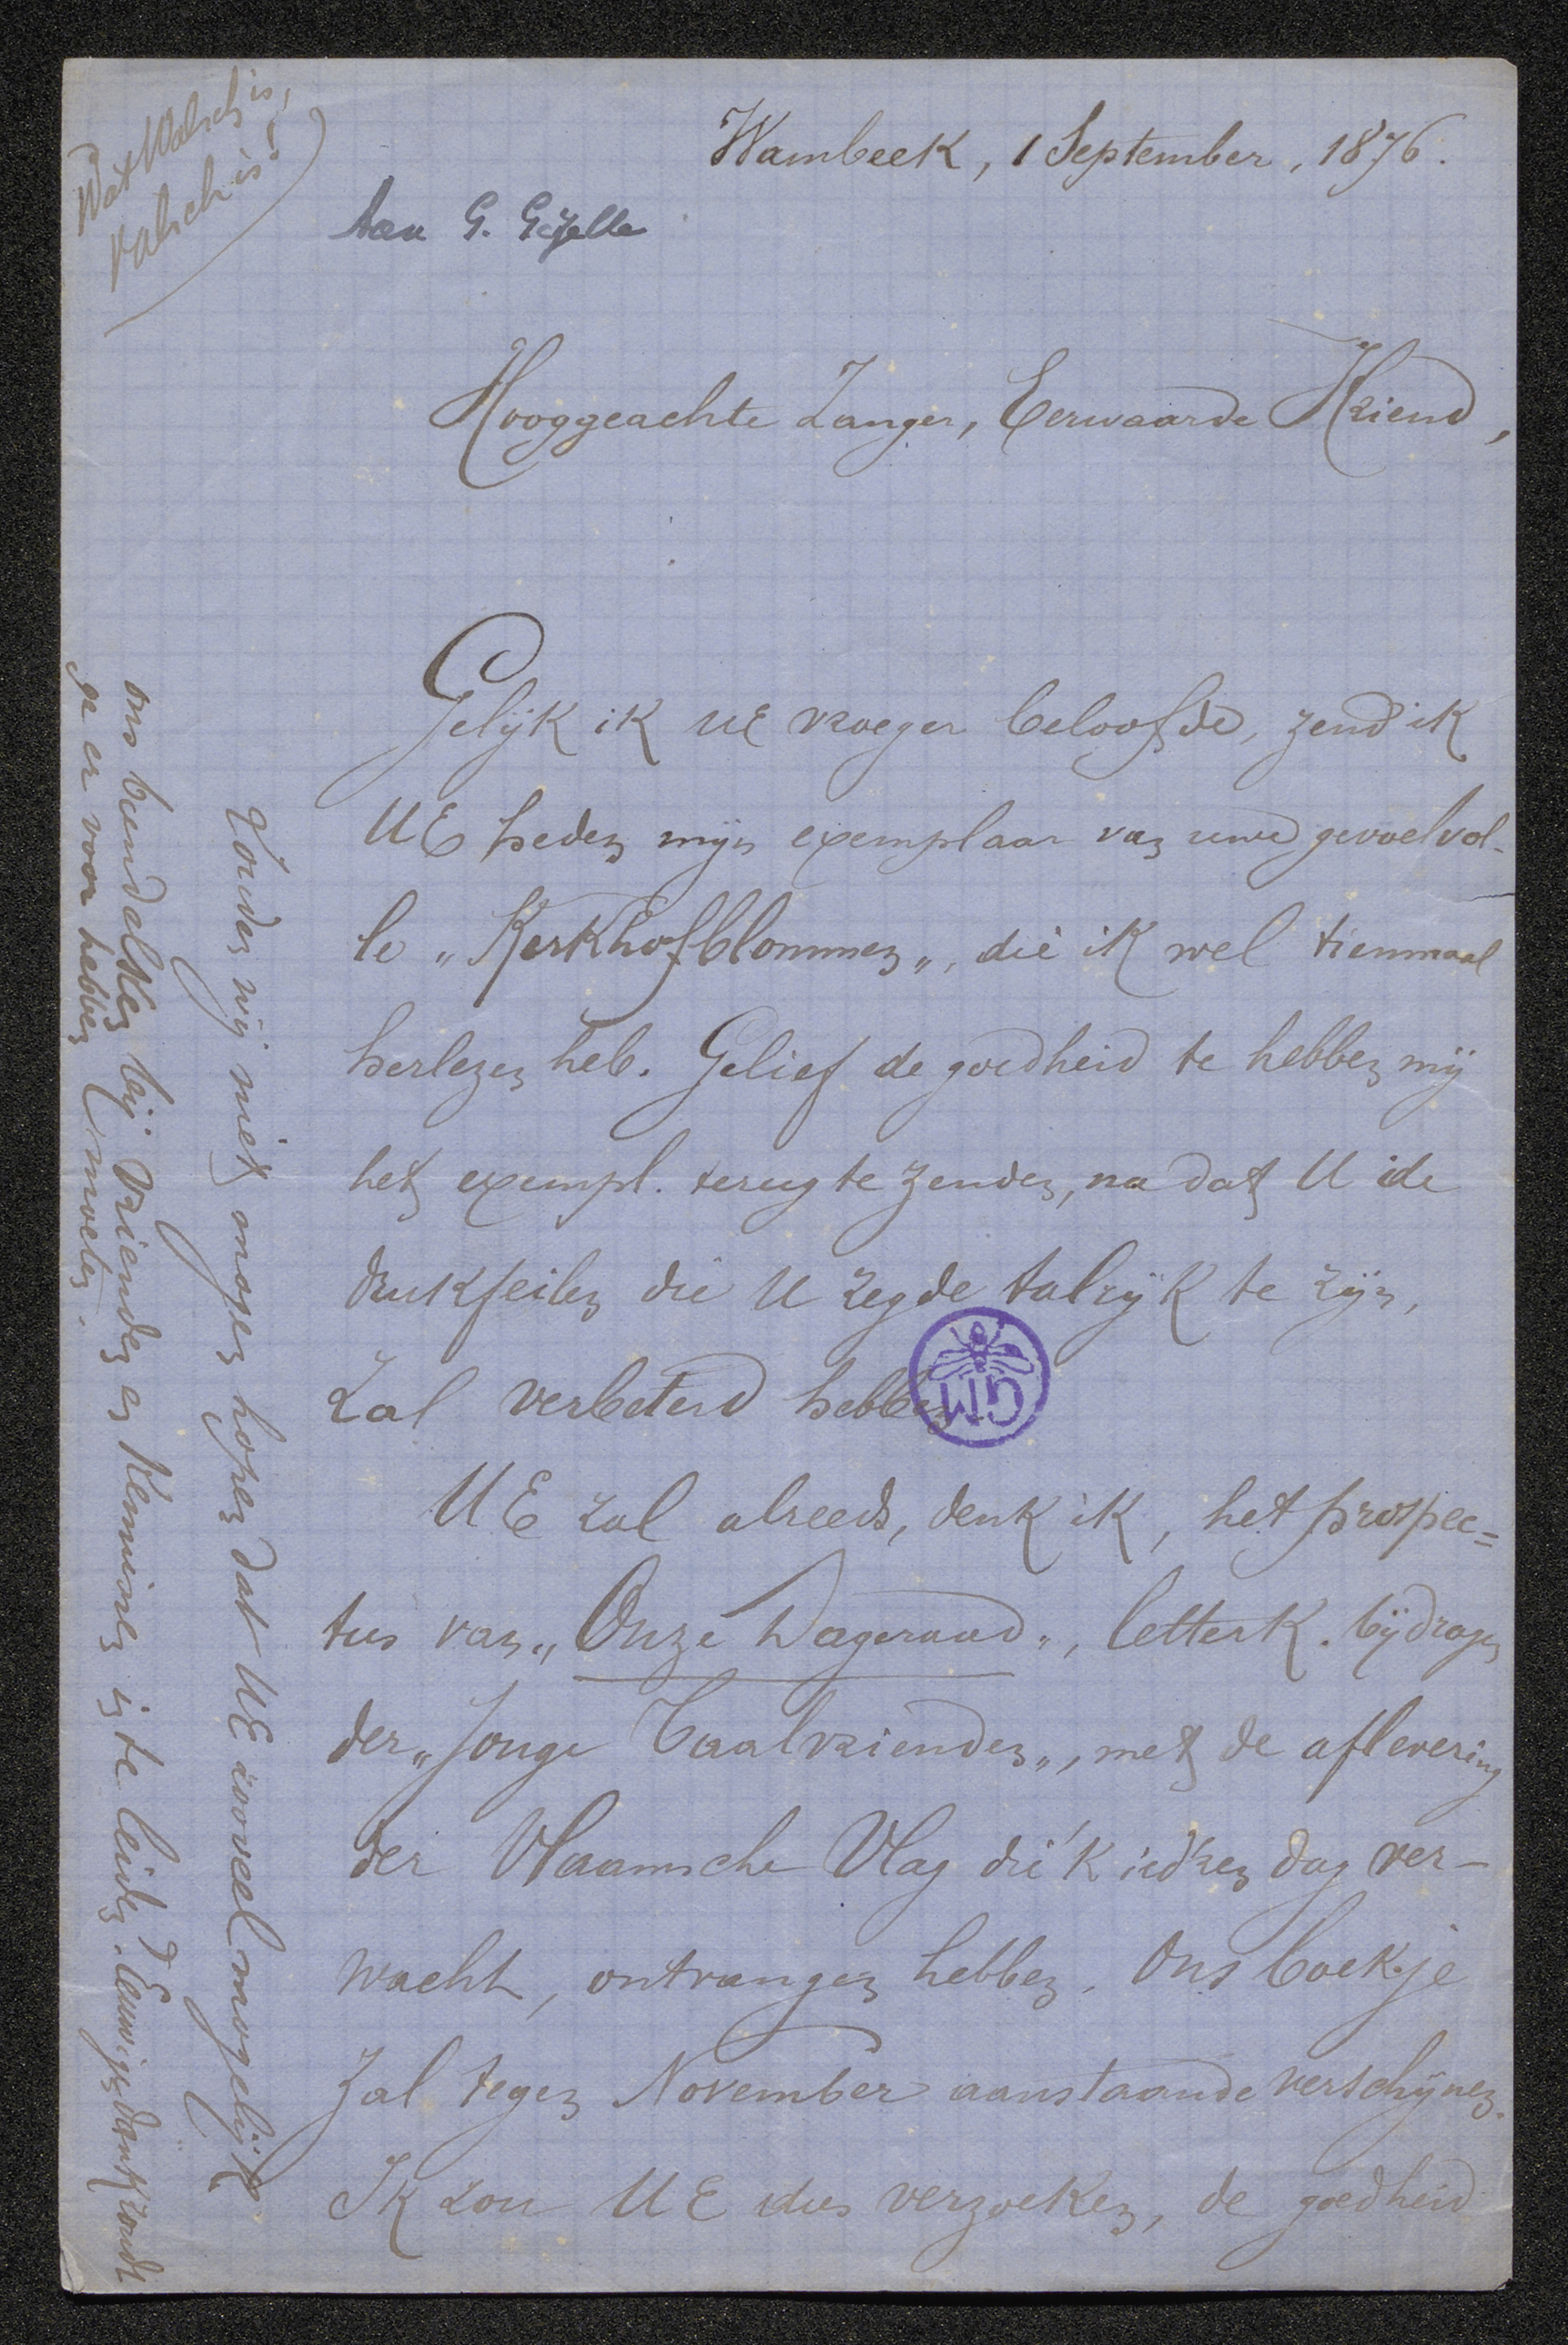 Wat Walsch is,
valsch is!
Wambeek, 1 September, 1876.
Aan G. Gezelle
Hooggeachte Zanger, Eerwaarde Vriend,
Gelijk ik UE vroeger beloofde, zend ik
UE heden mijn exemplaar van uwe gevoelvol-
le „Kerkhofblommen„, die ik wel tienmaal
herlezen heb. Gelief de goedheid te hebben mij
het exempl. terug te zenden, na dat U de
drukfeilen die U zegde talrijk te zijn,
zal verbeterd hebben.
GM
UE zal alreeds, denk ik, het prospec=
tus van „Onze Dageraad„, letterk. bijdragen
der „Jonge Taalvrienden„, met de aflevering
der Vlaamsche Vlag die 'k iedren dag ver-
wacht, ontvangen hebben. Ons boekje
zal tegen November aanstaande verschijnen.
Ik zou UE dus verzoeken, de goedheid
Zouden wij niet mogen hopen dat UE zooveel mogelijk
ons bundeltje bij vrienden en kenninen in te leiden.
ge er voor hebben moeten.